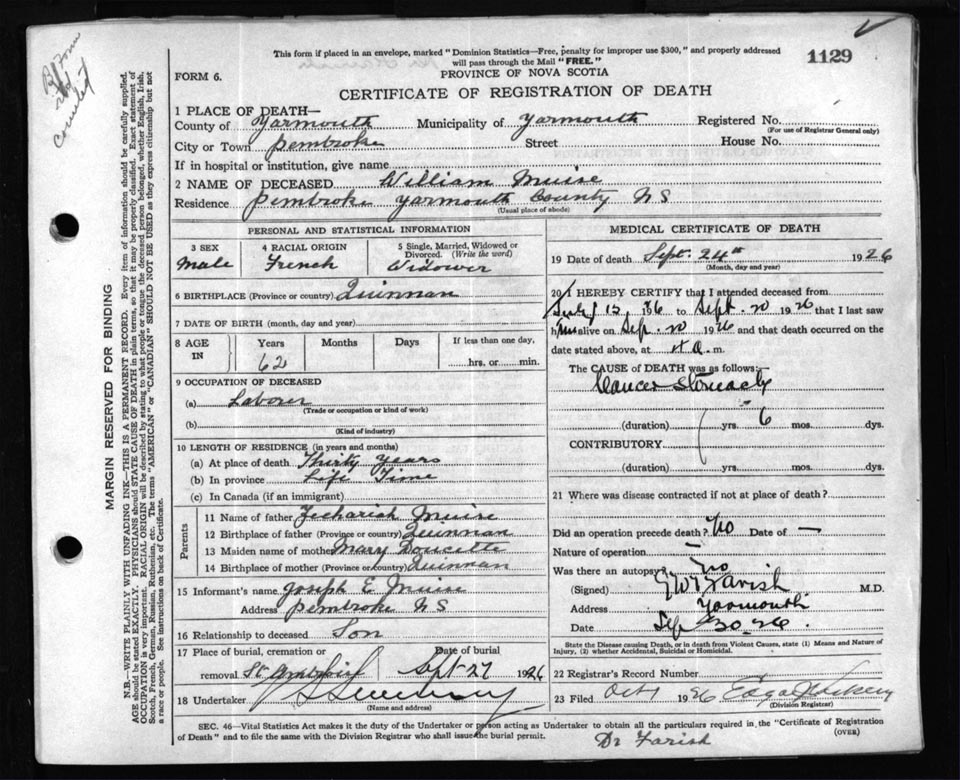 This form if placed in an envelope, marked "Dominion Statistics—Free, penalty for improper use $300," and properly addressed
will pass through the Mail "FREE."
1129
FORM 6.
PROVINCE OF NOVA SCOTIA
CERTIFICATE OF REGISTRATION OF DEATH
1 PLACE OF DEATH—
County of Yarmouth Municipality of Yarmouth Registered No.
(For use of Registrar General only)
City or Town Pembroke Street House No.
If in hospital or institution, give name
2 NAME OF DECEASED William Muise
Residence Pembroke Yarmouth County N S
(Usual place of abode)
PERSONAL AND STATISTICAL INFORMATION
3 SEX Male
4 RACIAL ORIGIN French
5 Single, Married, Widowed or Divorced. (Write the word) Widower
6 BIRTHPLACE (Province or country) Quinnan
7 DATE OF BIRTH (month, day and year)
8 AGE IN Years 62 Months Days If less than one day, hrs. or min.
9 OCCUPATION OF DECEASED
(a) Laborer
(Trade or occupation or kind of work)
(b)
(Kind of industry)
10 LENGTH OF RESIDENCE (in years and months)
(a) At place of death Thirty Years
(b) In province Life Time
(c) In Canada (if an immigrant)
Parents
11 Name of father Zechariah Muise
12 Birthplace of father (Province or country) Quinnan
13 Maiden name of mother Mary Doucette
14 Birthplace of mother (Province or country) Quinnan
15 Informant's name Joseph E Muise
Address Pembroke N S
16 Relationship to deceased Son
17 Place of burial, cremation or Date of burial
removal St Sept 27 1926
18 Undertaker
(Name and address)
MEDICAL CERTIFICATE OF DEATH
19 Date of death Sept. 24th 1926
(Month, day and year)
20 I HEREBY CERTIFY that I attended deceased from
to Sept. 20 1926 that I last saw
him alive on Sep. 20 1926 and that death occurred on
date stated above, at a.m.
The CAUSE OF DEATH was as follows:—
Cancer Stomach
(duration) yrs. 6 mos. dys.
CONTRIBUTORY
(duration) yrs. mos. dys.
21 Where was disease contracted if not at place of death?
Did an operation precede death? No Date of —
Nature of operation —
Was there an autopsy? No
(Signed) Farish M.D.
Address Yarmouth
Date Sep 30-26.
State the Disease causing Death, or in death from Violent Causes, state (1) Means and Nature of
Injury, (2) whether Accidental, Suicidal or Homicidal.
22 Registrar's Record Number
23 Filed Oct 1 1926
(Division Registrar)
SEC. 46—Vital Statistics Act makes it the duty of the Undertaker or person acting as Undertaker to obtain all the particulars required in the "Certificate of Registration
of Death" and to file the same with the Division Registrar who shall issue the burial permit.
(OVER)
Dr Farish
MARGIN RESERVED FOR BINDING
N.B.—WRITE PLAINLY WITH UNFADING INK—THIS IS A PERMANENT RECORD. Every item of information should be carefully supplied.
AGE should be stated EXACTLY. PHYSICIANS should STATE CAUSE OF DEATH in plain terms, so that it may be properly classified. Exact statement of
OCCUPATION is very important. RACIAL ORIGIN will be described by stating to what people or tongue the deceased person belonged, whether English, Irish,
Scotch, French, German, Russian, Ruthenian, etc. The terms "AMERICAN" or "CANADIAN" SHOULD NOT BE USED as they express citizenship but not
a race or people. See instructions on back of Certificate.